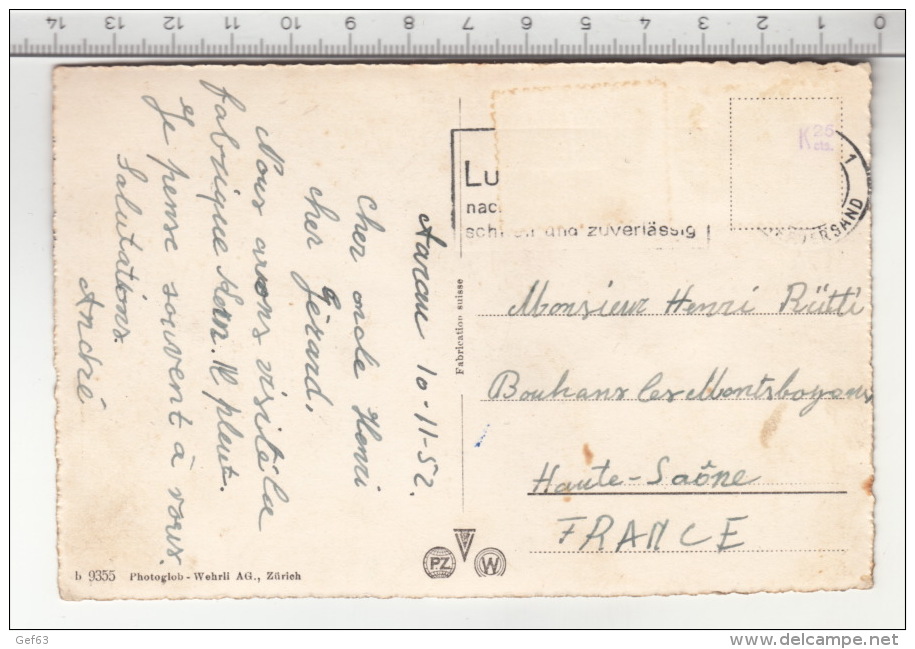 14 13 12 11 10 9 8 7 6 5 4 3 2 1 0
Aarau 10-11-52.
Cher oncle Henri
cher Gérard,
Nous avons visité la
fabrique Kern. Il pleut.
Je pense souvent à vous.
Salutations.
André
Fabrication suisse
Lu
nac
sch und zuverlässig
K 25
cts.
1
VERSAND
Monsieur Henri Rütti
Bouhans les Montsboyons
Haute-Saône
FRANCE
PZ W
b 9355 Photoglob-Wehrli AG., Zürich
Gef63
delcampe.net